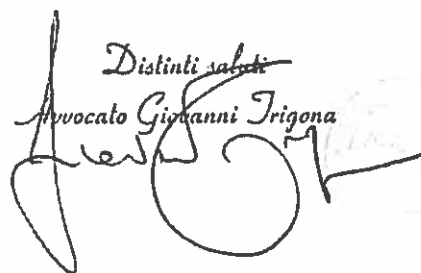 Distinti saluti
Avvocato Giovanni Trigona